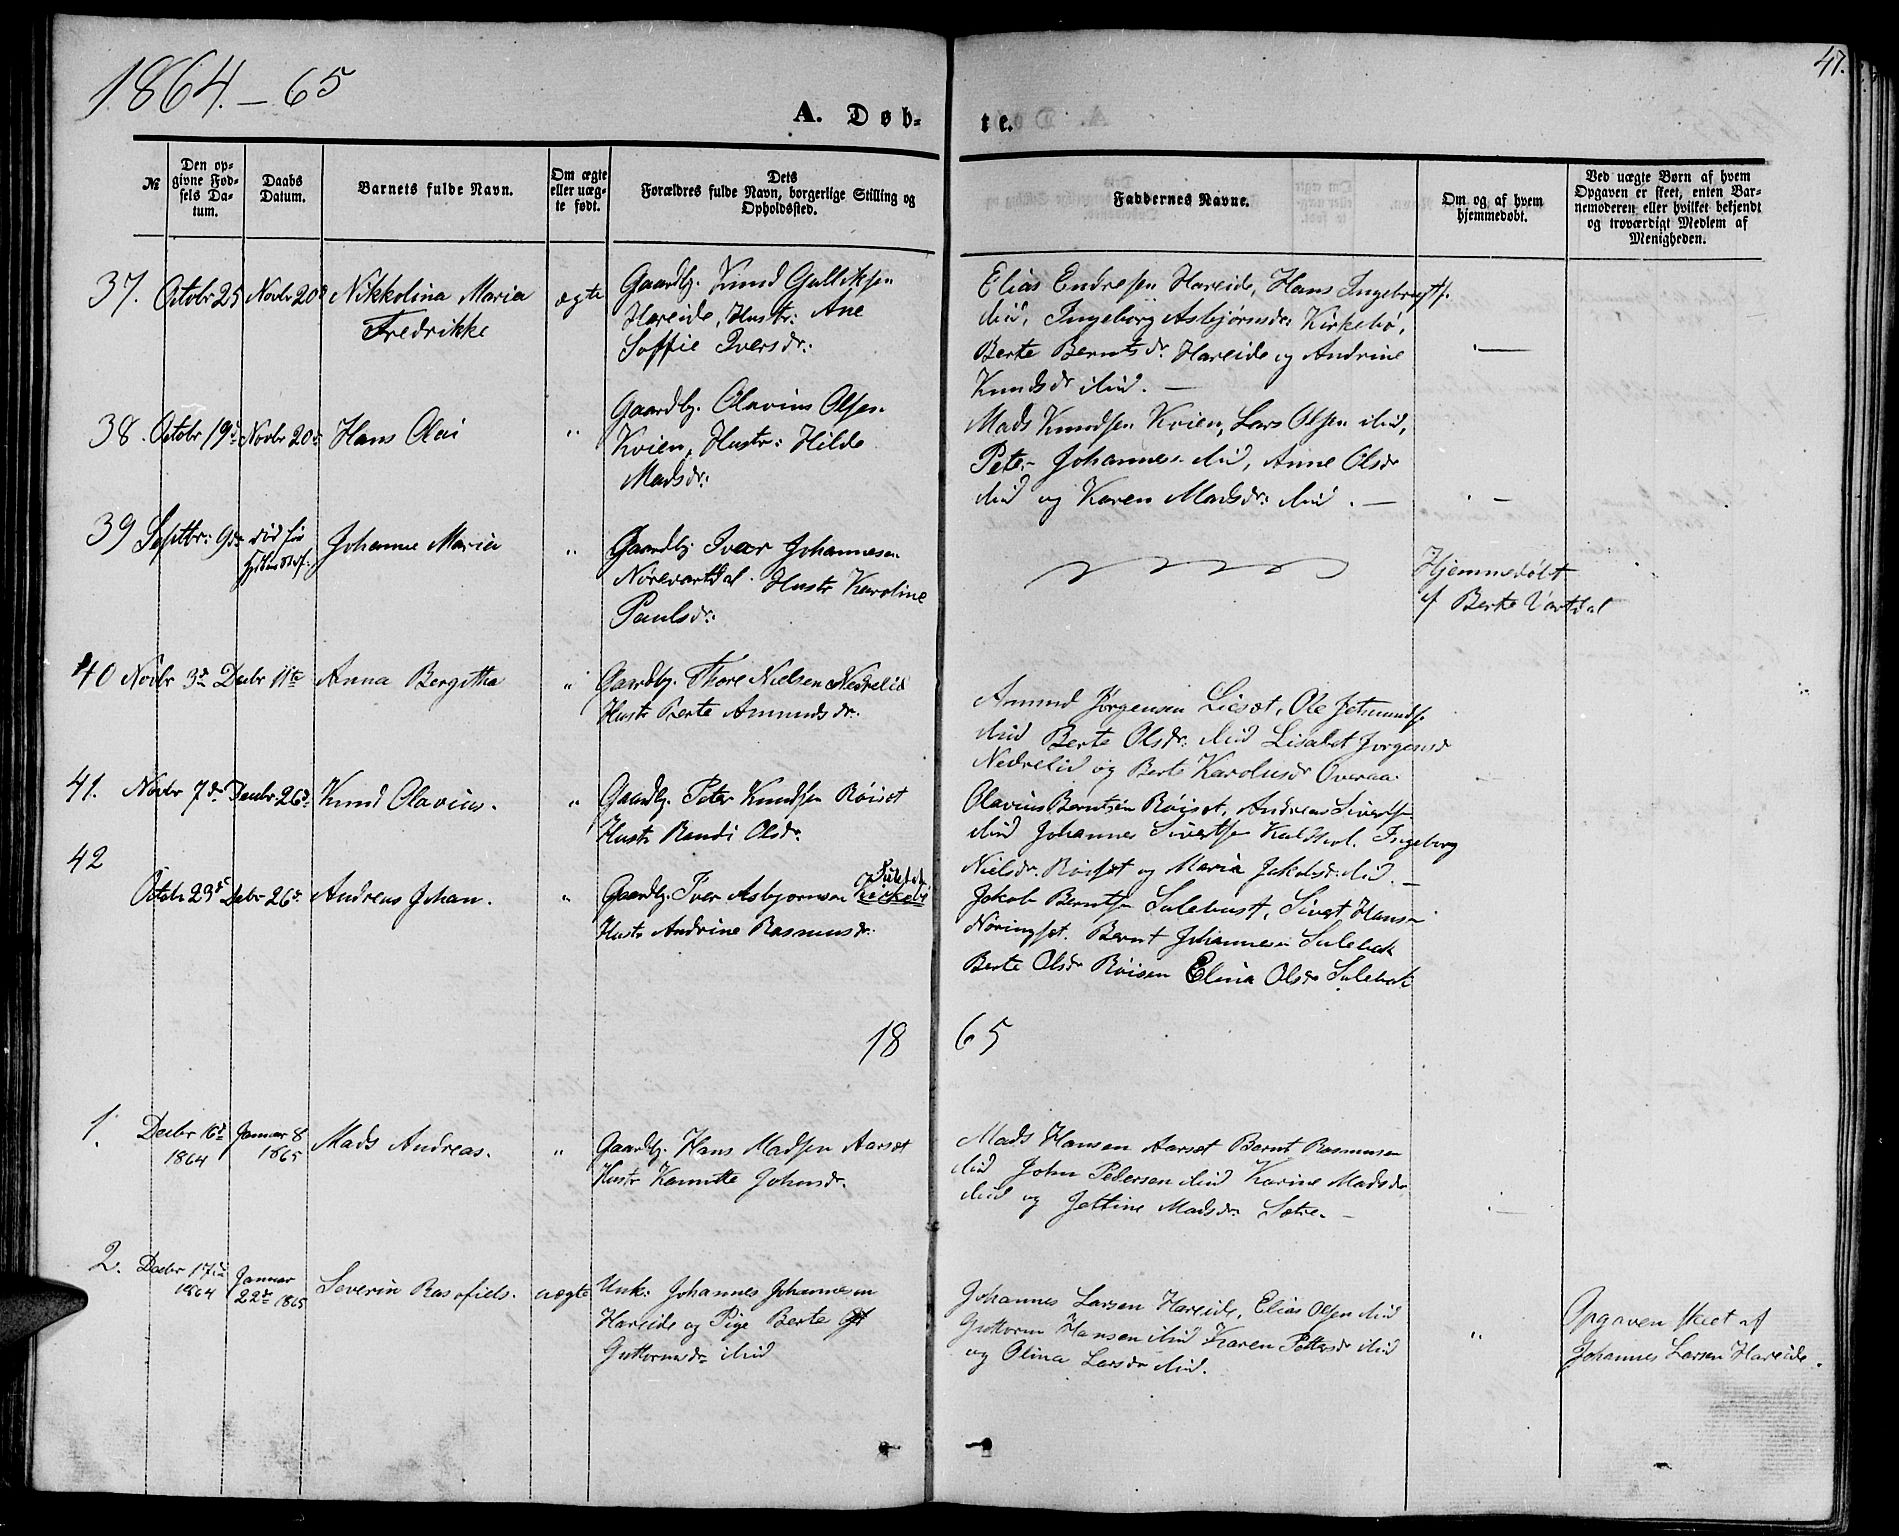 1864.-65
47.
A. Døb-
te.
№
Den op-
givne Fød-
sels Da-
tum.
Daabs
Datum.
Barnets fulde Navn.
Om ægte
eller uæg-
te født.
Dets
Forældres fulde Navn, borgerlige Stilling og
Opholdssted.
Faddernes Navne.
Om og af hvem
hjemmedøbt.
Ved uægte Børn af hvem
Opgaven er skeet, enten Bar-
nemoderen eller hvilket bekjendt
og troværdigt Medlem af
Menigheden.
37. Octobr 25 Novbr 20de Nikkolina Maria
Fredrikke
ægte
Gaardbr. Knud Gulliksen
Hareide, Hustr: Ane
Soffie Iversdr:
Elias Endresen Hareide, Hans Ingebregts.
ibid, Ingeborg Asbjørnsdr Kirkebø,
Berte Berntsdr. Hareide og Andrine
Knudsdr ibid. —
38. Octobr 19de Novbr 20de Hans Olai
"
Gaardbr. Olavius Olsen
Kvien, Hustr: Hilde
Madsdr:
Mads Knudsen Kvien, Lars Olsen ibid,
Peter Johannes. ibid, Anne Olsdr
ibid og Karen Madsdr: ibid. —
39 Septbr: 9de død før
Johanne Maria
"
Gaardbr. Ivar Johannesen
Nørevartdal. Hustr Karoline
Paulsdr:
Hjemmedøbt
af Berte Vartdal
40 Novbr 3de Decbr 11te Anna Bergitha
"
Gaardbr. Thore Nielsen Nedrelid
Hustr Berte Amundsdr.
Amund Jørgensen Liesæt, Ole Jetmunds.
ibid Berte Olsdr. ibid Lisabet Jørgensdr
Nedrelid og Berte Karolusdr Overaa.
41. Novbr 7de Decbr 26de Knud Olavius.
"
Gaardbr. Peter Knudsen Røiset
Hustr Randi Olsdr.
Olavius Berntsen Røiset, Andreas Sivertsen
ibid Johannes Sivertsen Kaldhol. Ingeborg
Nielsdr. Røiset og Maria Jakobsdr. ibid. —
42
Octobr 23de Decbr 26de Andreas Johan.
"
Gaardbr. Iver Asbjørnsen Kirkebø
Hustr Andrine Rasmusdr.
Jakob Berntsen Sulebust, Sivert Hansen
Nøringset. Bernt Johannesen Sulebak
Berte Olsdr Røisen Elina Olsdr Sulebak
18 65
1. Decbr 16de
1864
Januar 8
1865
Mads Andreas.
"
Gaardbr. Hans Madsen Aarset
Hustr Kanutte Johnsdr.
Mads Hansen Aarset Bernt Rasmusen
ibid John Pedersen ibid Karine Madsdr
ibid og Jettine Madsdr: Sætre. —
2. Decbr 17de
1864
Januar
22de 1865
Severin Rasofiels.
uægte
Unk: Johannes Johannesen
Hareide og Pige Berte
Guttormsdr ibid
Johannes Larsen Hareide, Elias Olsen ibid
Guttorm Hansen ibid Karen Pettersdr ibid
og Olina Larsdr ibid.
"
Opgaven skeet af
Johannes Larsen Hareide.